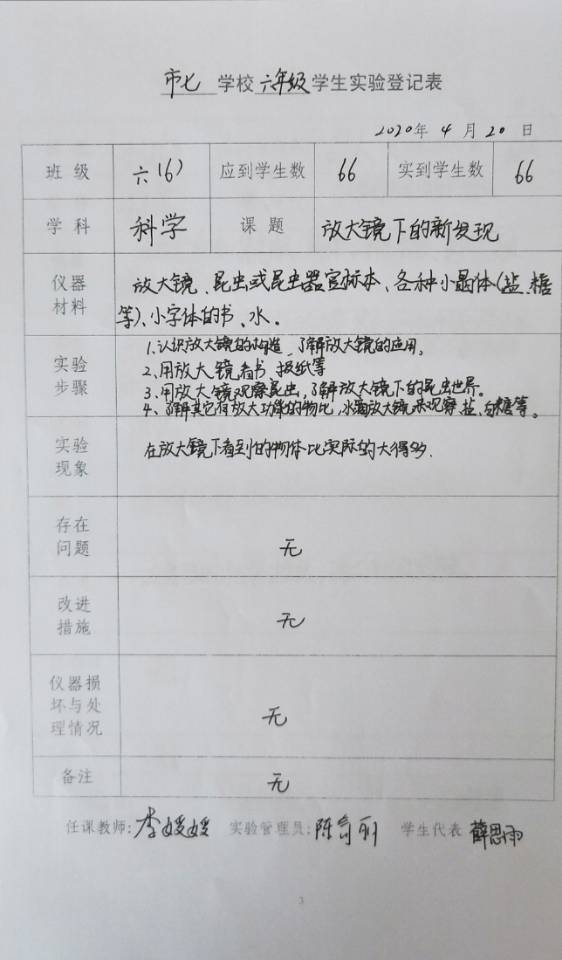 市七 学校 六年级 学生实验登记表
2020年 4 月 20 日
班 级 六(6) 应到学生数 66 实到学生数 66
学 科 科学 课 题 放大镜下的新发现
仪器
材料
放大镜、昆虫或昆虫器官标本、各种小晶体(盐、糖
等)、小字体的书、水。
实验
步骤
1、认识放大镜的构造,了解放大镜的应用。
2、用放大镜看书、报纸等
3、用放大镜观察昆虫,了解放大镜下的昆虫世界。
4、了解其它有放大功能的物比,水滴放大镜来观察盐、白糖等。
实验
现象
在放大镜下看到的物体比实际的大得多.
存在
问题
无
改进
措施
无
仪器损
坏与处
理情况
无
备注
无
任课教师: 李媛媛 实验管理员: 陈 利 学生代表 薛思雨
3